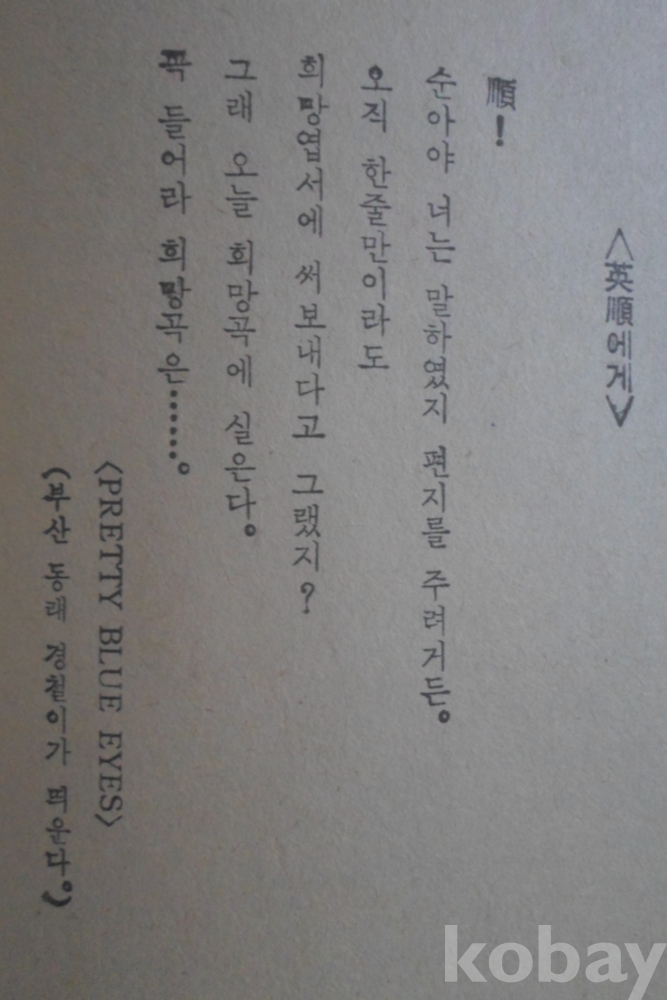 <英順에게>
順!
순아야 너는 말하였지 편지를 주려거든。
오직 한줄만이라도
희망엽서에 써보내다고 그랬지?
그래 오늘 희망곡에 실은다。
꼭 들어라 희망곡은……。
<PRETTY BLUE EYES>
(부산 동래 경철이가 띄운다。)
kobay